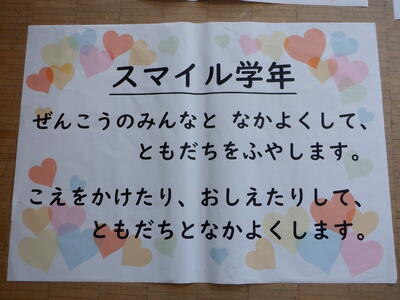 スマイル学年
ぜんこうのみんなと なかよくして、
ともだちをふやします。
こえをかけたり、おしえたりして、
ともだちとなかよくします。